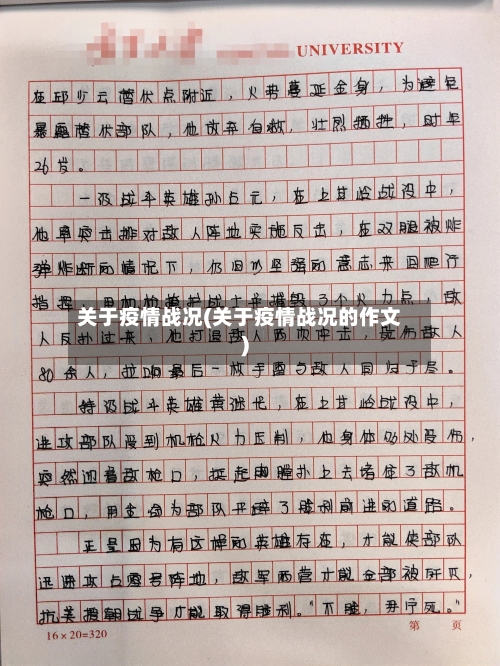 UNIVERSITY
在邱少云潜伏点附近，火势蔓延全身，为避免
暴露潜伏部队，他放弃自救，壮烈牺牲，时年
26岁。
一级战斗英雄孙占元，在上甘岭战役中，
他率突击排对敌人阵地实施反击，在双腿被炸
弹炸断的情况下，仍旧以坚强的意志来回爬行
指挥，用机枪掩护战士
摧毁了3个火力点，敌
关于疫情战况(关于疫情战况的作文
)
人反扑过来，他打退敌人两次冲击，毙伤敌人
80余人，拉响最后一枚手雷与敌人同归于尽。
特级战斗英雄黄继光，在上甘岭战役中，
进攻部队受到机枪火力压制，他身体多处受伤，
突然迎着敌枪口，挺起胸膛扑上去堵住了敌机
枪口，用生命为部队开辟了胜利前进的道路。
正是因为有这样的英雄存在，才能使部队
迅速攻占零号阵地，敌军两营才能全部被歼灭，
抗美援朝战争才能取得胜利。"不胜，毋宁死。"
16×20=320
第 页